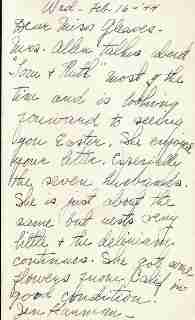 Wed - Feb 16 - 44
Dear Miss Gleaves -
Mrs. Allen talks about
"Tom & Ruth" most of the
time and is looking
forward to seeing
you Easter. She enjoys
your letter. Especially
the seven husbands.
She is just about the
same but rests very
little & the delirium
continues. She got some
flowers from Calif in
good condition!